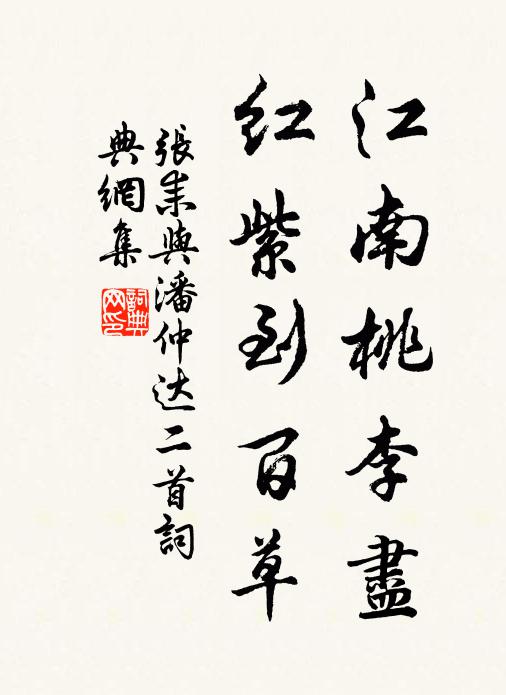 江南桃李盡
紅紫到百草
張耒與潘仲达二首詞
典網集
詞典網印